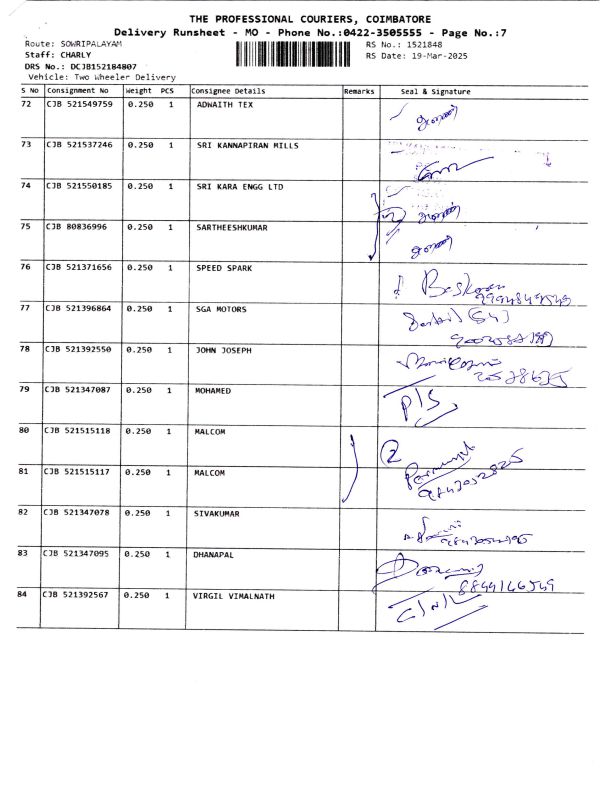 THE PROFESSIONAL COURIERS, COIMBATORE
Delivery Runsheet - MO - Phone No.:0422-3505555 - Page No.:7
Route: SOWRIPALAYAM
RS No.: 1521848
Staff: CHARLY
RS Date: 19-Mar-2025
DRS No.: DCJB152184807
Vehicle: Two Wheeler Delivery
S No Consignment No Weight PCS Consignee Details Remarks Seal & Signature
72 CJB 521549759 0.250 1 ADWAITH TEX
73 CJB 521537246 0.250 1 SRI KANNAPIRAN MILLS
74 CJB 521550185 0.250 1 SRI KARA ENGG LTD
75 CJB 80836996 0.250 1 SARTHEESHKUMAR
76 CJB 521371656 0.250 1 SPEED SPARK
77 CJB 521396864 0.250 1 SGA MOTORS
78 CJB 521392550 0.250 1 JOHN JOSEPH
79 CJB 521347087 0.250 1 MOHAMED P/S
80 CJB 521515118 0.250 1 MALCOM 2
81 CJB 521515117 0.250 1 MALCOM
82 CJB 521347078 0.250 1 SIVAKUMAR
83 CJB 521347095 0.250 1 DHANAPAL
8899166549
84 CJB 521392567 0.250 1 VIRGIL VIMALNATH